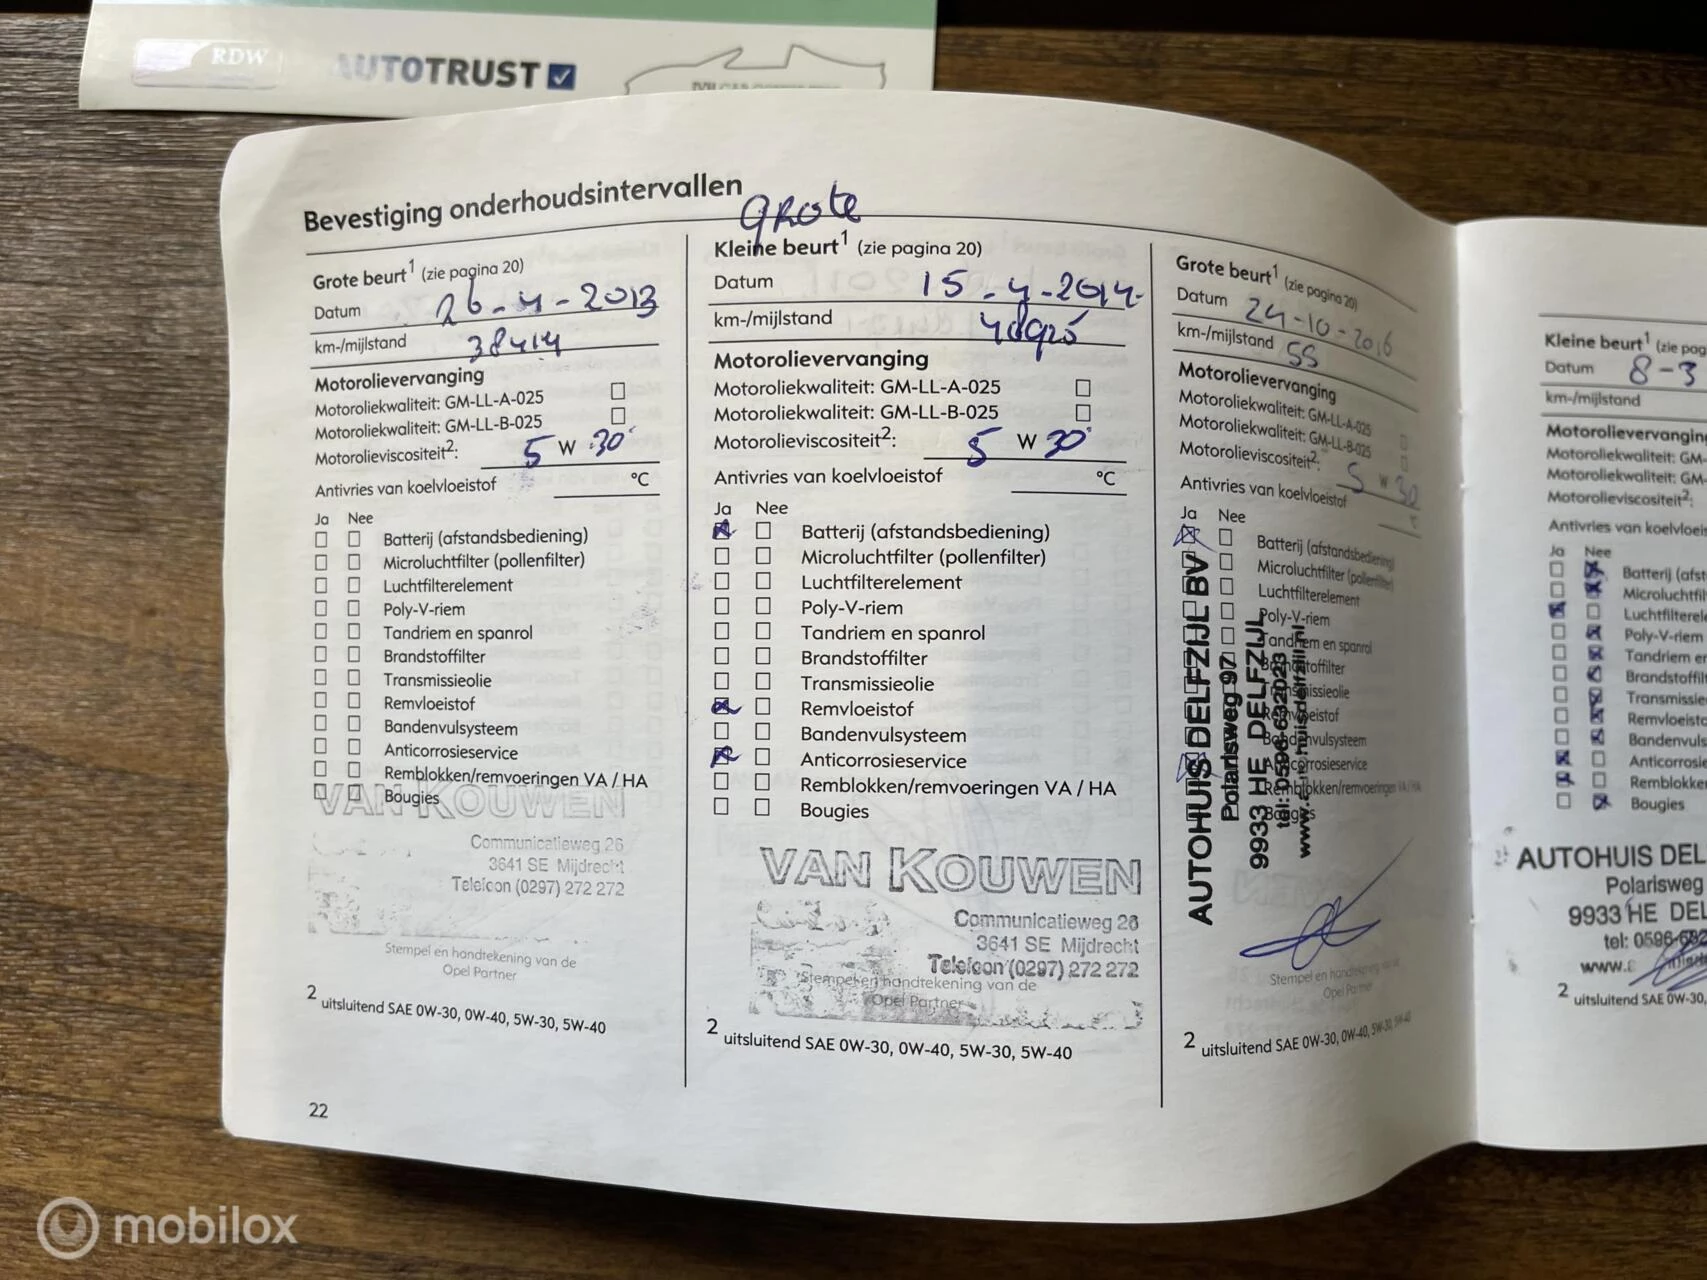 RDW
AUTOTRUST
Bevestiging onderhoudsintervallen
Grote beurt¹ (zie pagina 20)
Datum 26-4-2013
km-/mijlstand 38414
Motorolievervanging
Motoroliekwaliteit: GM-LL-A-025
Motoroliekwaliteit: GM-LL-B-025
Motorolieviscositeit²: 5 W 30
Antivries van koelvloeistof °C
Ja Nee
Batterij (afstandsbediening)
Microluchtfilter (pollenfilter)
Luchtfilterelement
Poly-V-riem
Tandriem en spanrol
Brandstoffilter
Transmissieolie
Remvloeistof
Bandenvulsysteem
Anticorrosieservice
Remblokken/remvoeringen VA / HA
Bougies
VAN KOUWEN
Communicatieweg 26
3641 SE Mijdrecht
Telefoon (0297) 272 272
Stempel en handtekening van de
Opel Partner
² uitsluitend SAE 0W-30, 0W-40, 5W-30, 5W-40
22
Grote
Kleine beurt¹ (zie pagina 20)
Datum 15-4-2014
km-/mijlstand
Motorolievervanging
Motoroliekwaliteit: GM-LL-A-025
Motoroliekwaliteit: GM-LL-B-025
Motorolieviscositeit²: 5 W 30
Antivries van koelvloeistof °C
Ja Nee
Batterij (afstandsbediening)
Microluchtfilter (pollenfilter)
Luchtfilterelement
Poly-V-riem
Tandriem en spanrol
Brandstoffilter
Transmissieolie
Remvloeistof
Bandenvulsysteem
Anticorrosieservice
Remblokken/remvoeringen VA / HA
Bougies
VAN KOUWEN
Communicatieweg 26
3641 SE Mijdrecht
Telefoon (0297) 272 272
Stempel en handtekening van de
Opel Partner
² uitsluitend SAE 0W-30, 0W-40, 5W-30, 5W-40
Grote beurt¹ (zie pagina 20)
Datum 24-10-2016
km-/mijlstand 55
Motorolievervanging
Motoroliekwaliteit: GM-LL-A-025
Motoroliekwaliteit: GM-LL-B-025
Motorolieviscositeit²: 5 W 30
Antivries van koelvloeistof °C
Ja Nee
Batterij (afstandsbediening)
Microluchtfilter (pollenfilter)
Luchtfilterelement
Poly-V-riem
Tandriem en spanrol
Brandstoffilter
Transmissieolie
Remvloeistof
Bandenvulsysteem
Anticorrosieservice
Remblokken/remvoeringen VA / HA
Bougies
AUTOHUIS DELFZIJL BV
Polarisweg 97
9933 HE DELFZIJL
tel: 0596-632023
www.autohuisdelfzijl.nl
Stempel en handtekening van de
Opel Partner
² uitsluitend SAE 0W-30, 0W-40, 5W-30, 5W-40
Kleine beurt¹ (zie pag
Datum 8-3
km-/mijlstand
Motorolievervanging
Motoroliekwaliteit: GM-
Motoroliekwaliteit: GM-
Motorolieviscositeit²:
Antivries van koelvloeis
Ja Nee
Batterij (afst
Microluchtfil
Luchtfilterele
Poly-V-riem
Tandriem en
Brandstoffil
Transmissie
Remvloeisto
Bandenvuls
Anticorrosie
Remblokke
Bougies
AUTOHUIS DEL
Polarisweg
9933 HE DEL
tel: 0596-632
www.
² uitsluitend SAE 0W-30,
mobilox